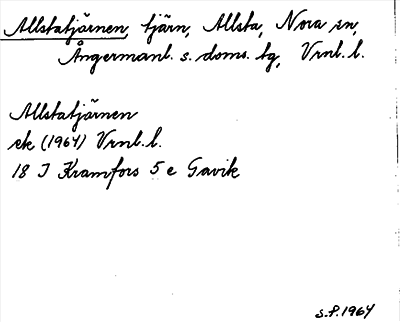 Allstatjärnen, tjärn, Allsta, Nora sn,
Ångermanl. s. doms. tg, Vrnl. l.
Allstatjärnen
ek (1964) Vrnl. l.
18 I Kramfors 5 e Gavik
S.P. 1964